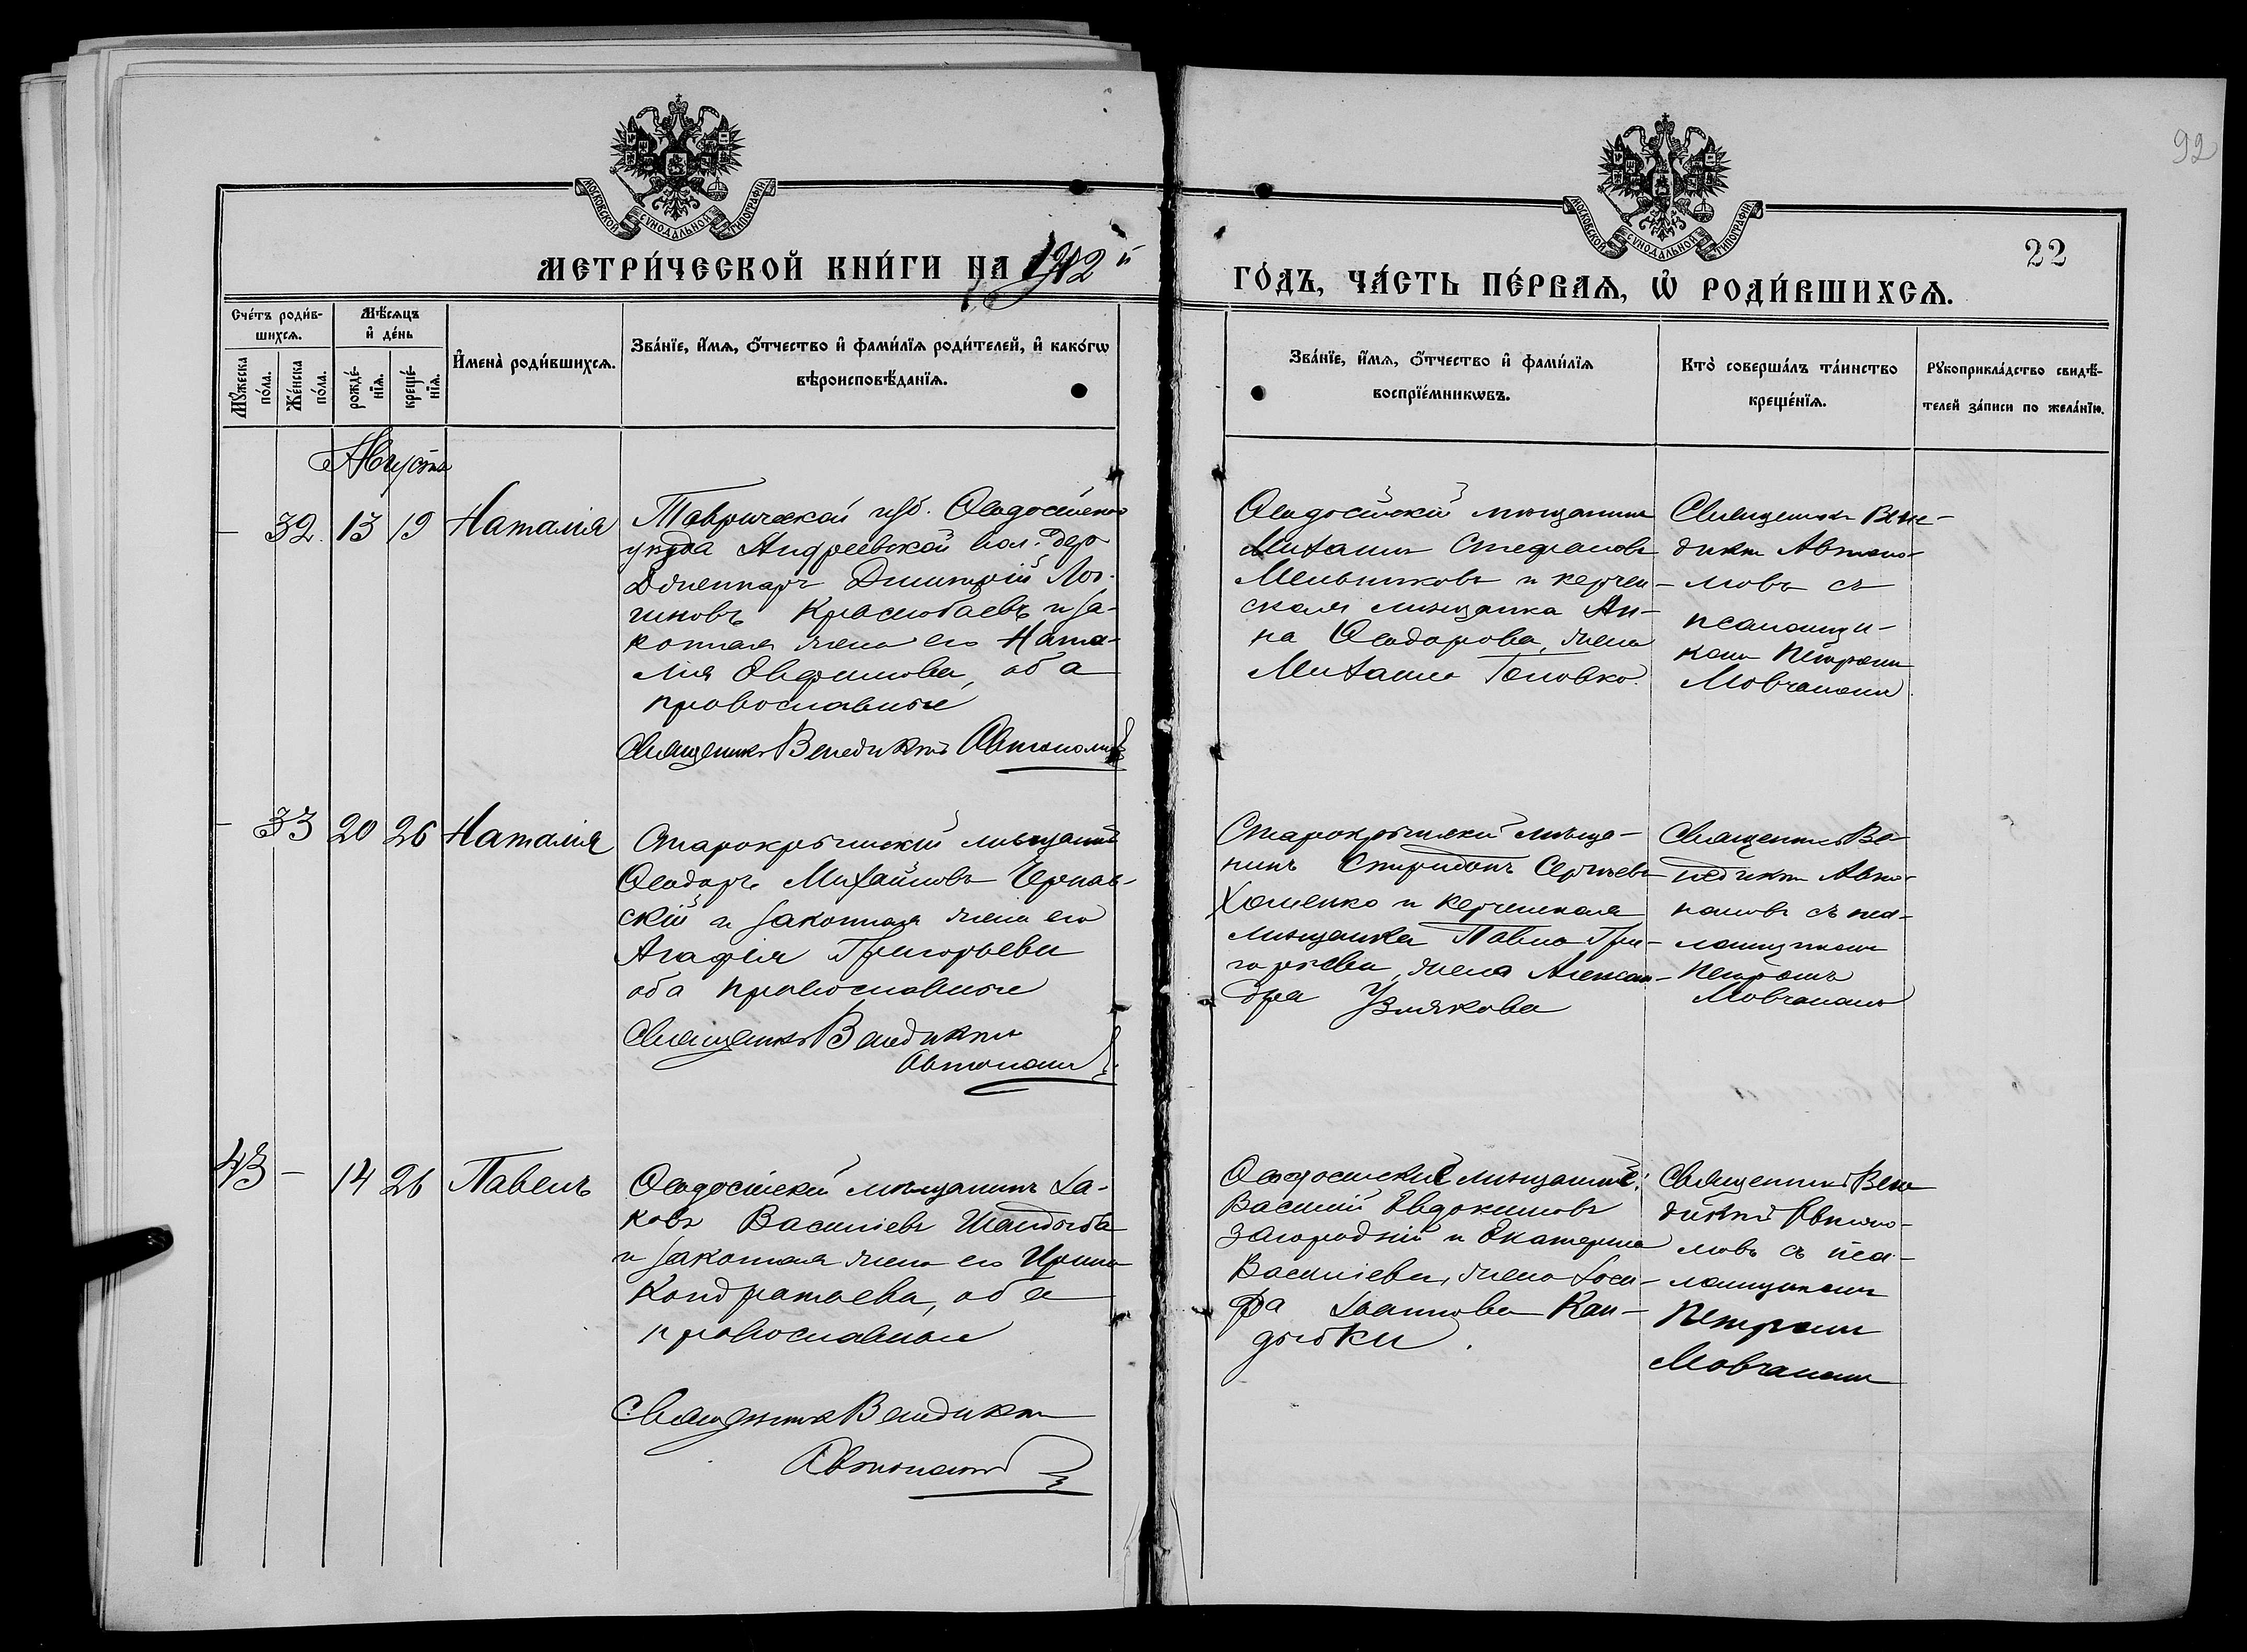 92
22
МОСКОВСКОЙ СѴНОДАЛЬНОЙ ТИПОГРАФІИ
МОСКОВСКОЙ СѴНОДАЛЬНОЙ ТИПОГРАФІИ
МЕТРИ́ЧЕСКОЙ КНИ́ГИ НА 1912 й
ГО́ДЪ, ЧА́СТЬ ПЕ́РВАѦ, Ѡ҆ РОДИ́ВШИХСѦ.
Сче́тъ роди́в-
шихсѧ.
Мꙋ́жеска по́ла.
Же́нска по́ла.
Мѣ́сѧцъ
и҆ де́нь
рожде́-
нїѧ.
креще́-
нїѧ.
И҆мена̀ роди́вшихсѧ.
Зва́нїе, и҆́мѧ, ѻ҆́тчество и҆ фами́лїѧ роди́телей, и҆ како́гѡ
вѣроисповѣ́данїѧ.
Зва́нїе, и҆́мѧ, ѻ҆́тчество и҆ фами́лїѧ
воспрїе́мникѡвъ.
Кто̀ соверша́лъ та́инство
креще́нїѧ.
Рꙋкоприкла́дство свидѣ́-
телей за́писи по жела́нїю.
Августа
– 32. 13 19 Наталія
Таврической губ. Ѳеодосійскаго
уѣзда Андреевской вол. дер
Дмитрій Лог-
гиновъ Краснобаевъ и за-
конная жена его Ната-
лія Евфимова, оба
православные
Священникъ Венедиктъ Автономовъ
Ѳеодосійскій мѣщанинъ
Михаилъ Стефановъ
Мельниковъ и керчен-
ская мѣщанка Ан-
на Ѳеодорова, жена
Михаила Головко.
Священникъ Вене-
диктъ Автоно-
мовъ съ
псаломщи-
комъ Петромъ
Мовчаномъ.
– 33 20 26 Наталія
Старокрымскій мѣщанинъ
Ѳеодоръ Михайловъ Чернав-
скій и законная жена его
Агафія Григорьева
оба православные
Священникъ Венедиктъ
Автономовъ
Старокрымскій мѣща-
нинъ Спиридонъ Сергѣевъ
Хоменко и керченская
мѣщанка Гри-
горьева, жена Алексан-
дра Узлякова
Священникъ Ве-
недиктъ Авто-
номовъ съ пса-
ломщикомъ
Петромъ
Мовчаномъ
43 – 14 26 Павелъ
Ѳеодосійскій мѣщанинъ Іа-
ковъ Василіевъ Шандыба
и законная жена его Ирина
Кондратьева, оба
православные
Священникъ Венедиктъ
Автономовъ
Ѳеодосійскіе мѣщане:
Василій Евдокимовъ
Загородній и Екатерина
Василіева, жена Іоси-
фа Іоаннова Кан-
дыбки.
Священникъ Вене
диктъ Автоно-
мовъ съ пса-
ломщикомъ
Петромъ
Мовчаномъ